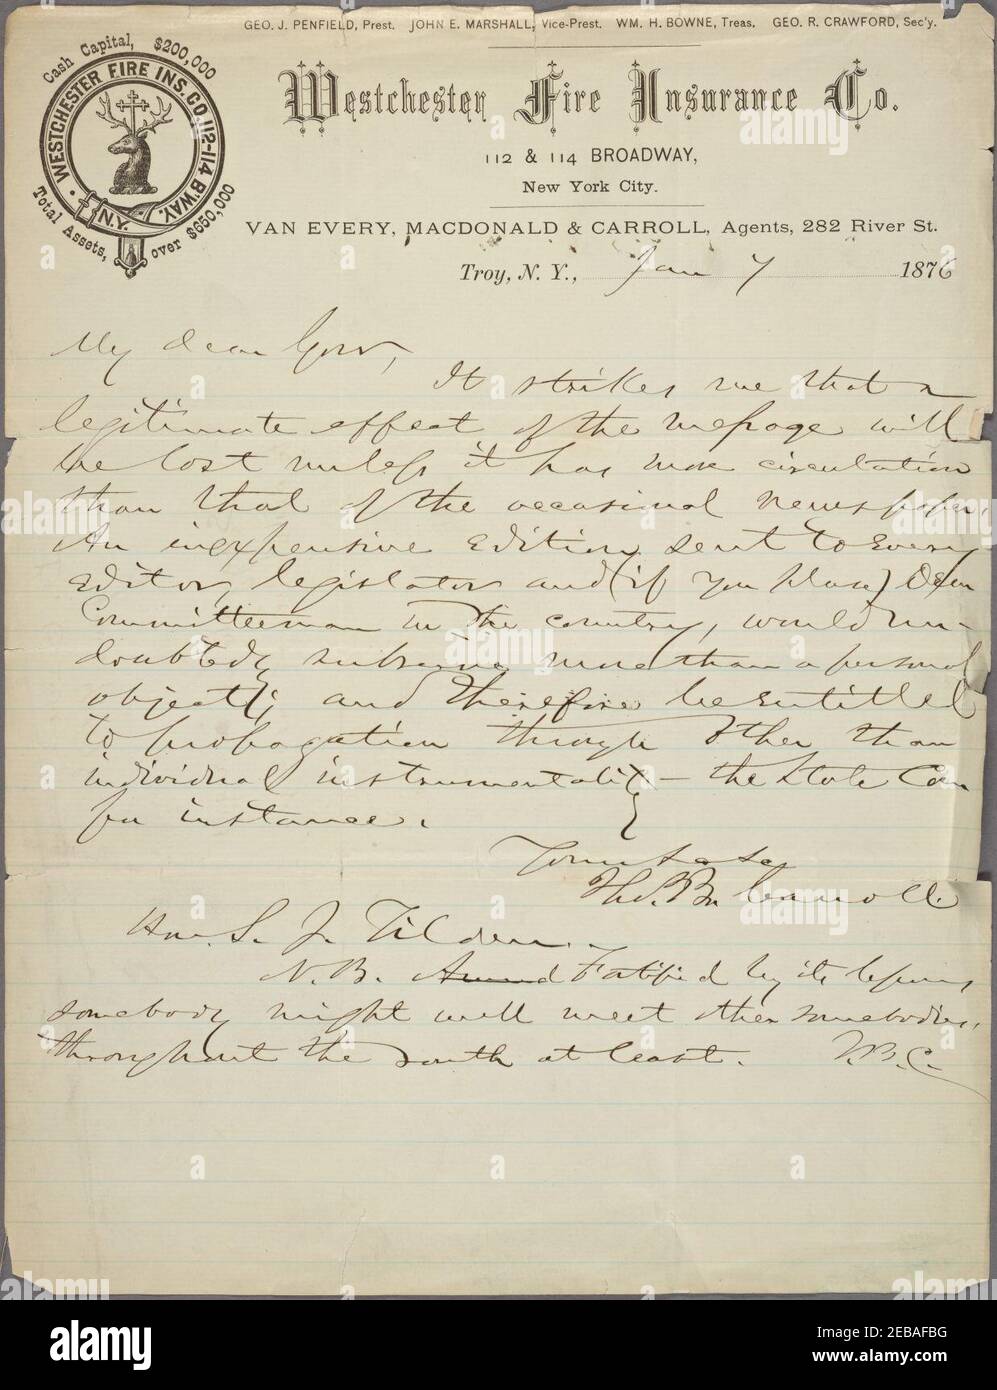 GEO. J. PENFIELD, Prest. JOHN E. MARSHALL, Vice-Prest. WM. H. BOWNE, Treas. GEO. R. CRAWFORD, Sec'y.
Cash Capital, $200,000
WESTCHESTER FIRE INS. CO. 112-114 B'WAY.
N.Y.
Total Assets, over $650,000
Westchester Fire Insurance Co.
112 & 114 BROADWAY,
New York City.
VAN EVERY, MACDONALD & CARROLL, Agents, 282 River St.
Troy, N. Y., Jan 7 1876
My dear Gov,
It strikes me that a
legitimate effect of the message will
be lost unless it has more circulation
than that of the occasional newspaper.
An inexpensive edition, sent to every
editor, legislator and (if you please) Dem
Committeeman in the country, would un-
doubtedly subserve more than a personal
object; and therefore be entitled
to propagation through other than
individual instrumentality – the State Com
for instance.
Yours
Tho. B. Carroll
Hon. S. J. Tilden.
N.B. Fortified by its
somebody might well meet other somebodies,
throughout the south at least. T.B.C.
alamy
Image ID: 2EBAFBG
www.alamy.com